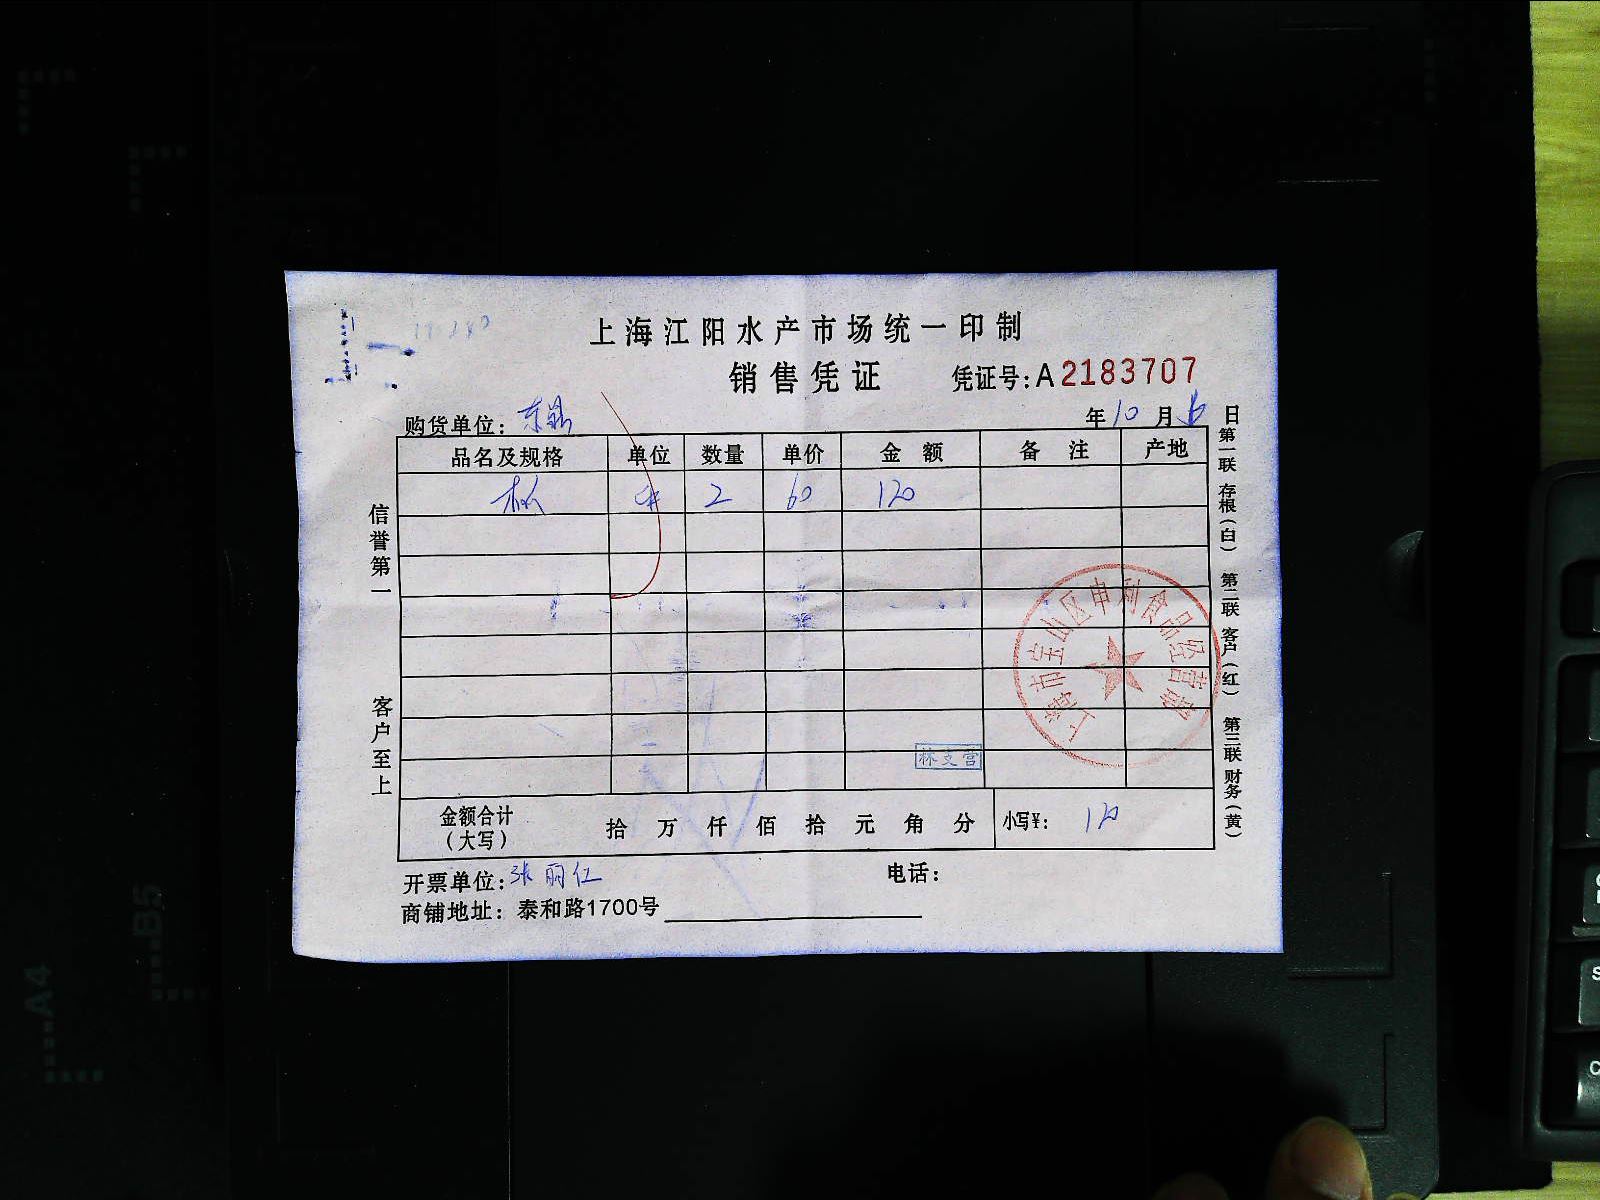 上海江阳水产市场统一印制
销售凭证 凭证号:A2183707
购货单位: 东 年10月 日
品名及规格 单位 数量 单价 金额 备注 产地
2 60 120
信誉第一
客户至上
第一联 存根(白) 第二联 客户(红) 第三联 财务(黄)
上海市宝山区申利食品经营部
林支营
金额合计(大写) 拾 万 仟 佰 拾 元 角 分 小写¥: 120
开票单位: 张丽仁 电话:
商铺地址: 泰和路1700号
A4
B5